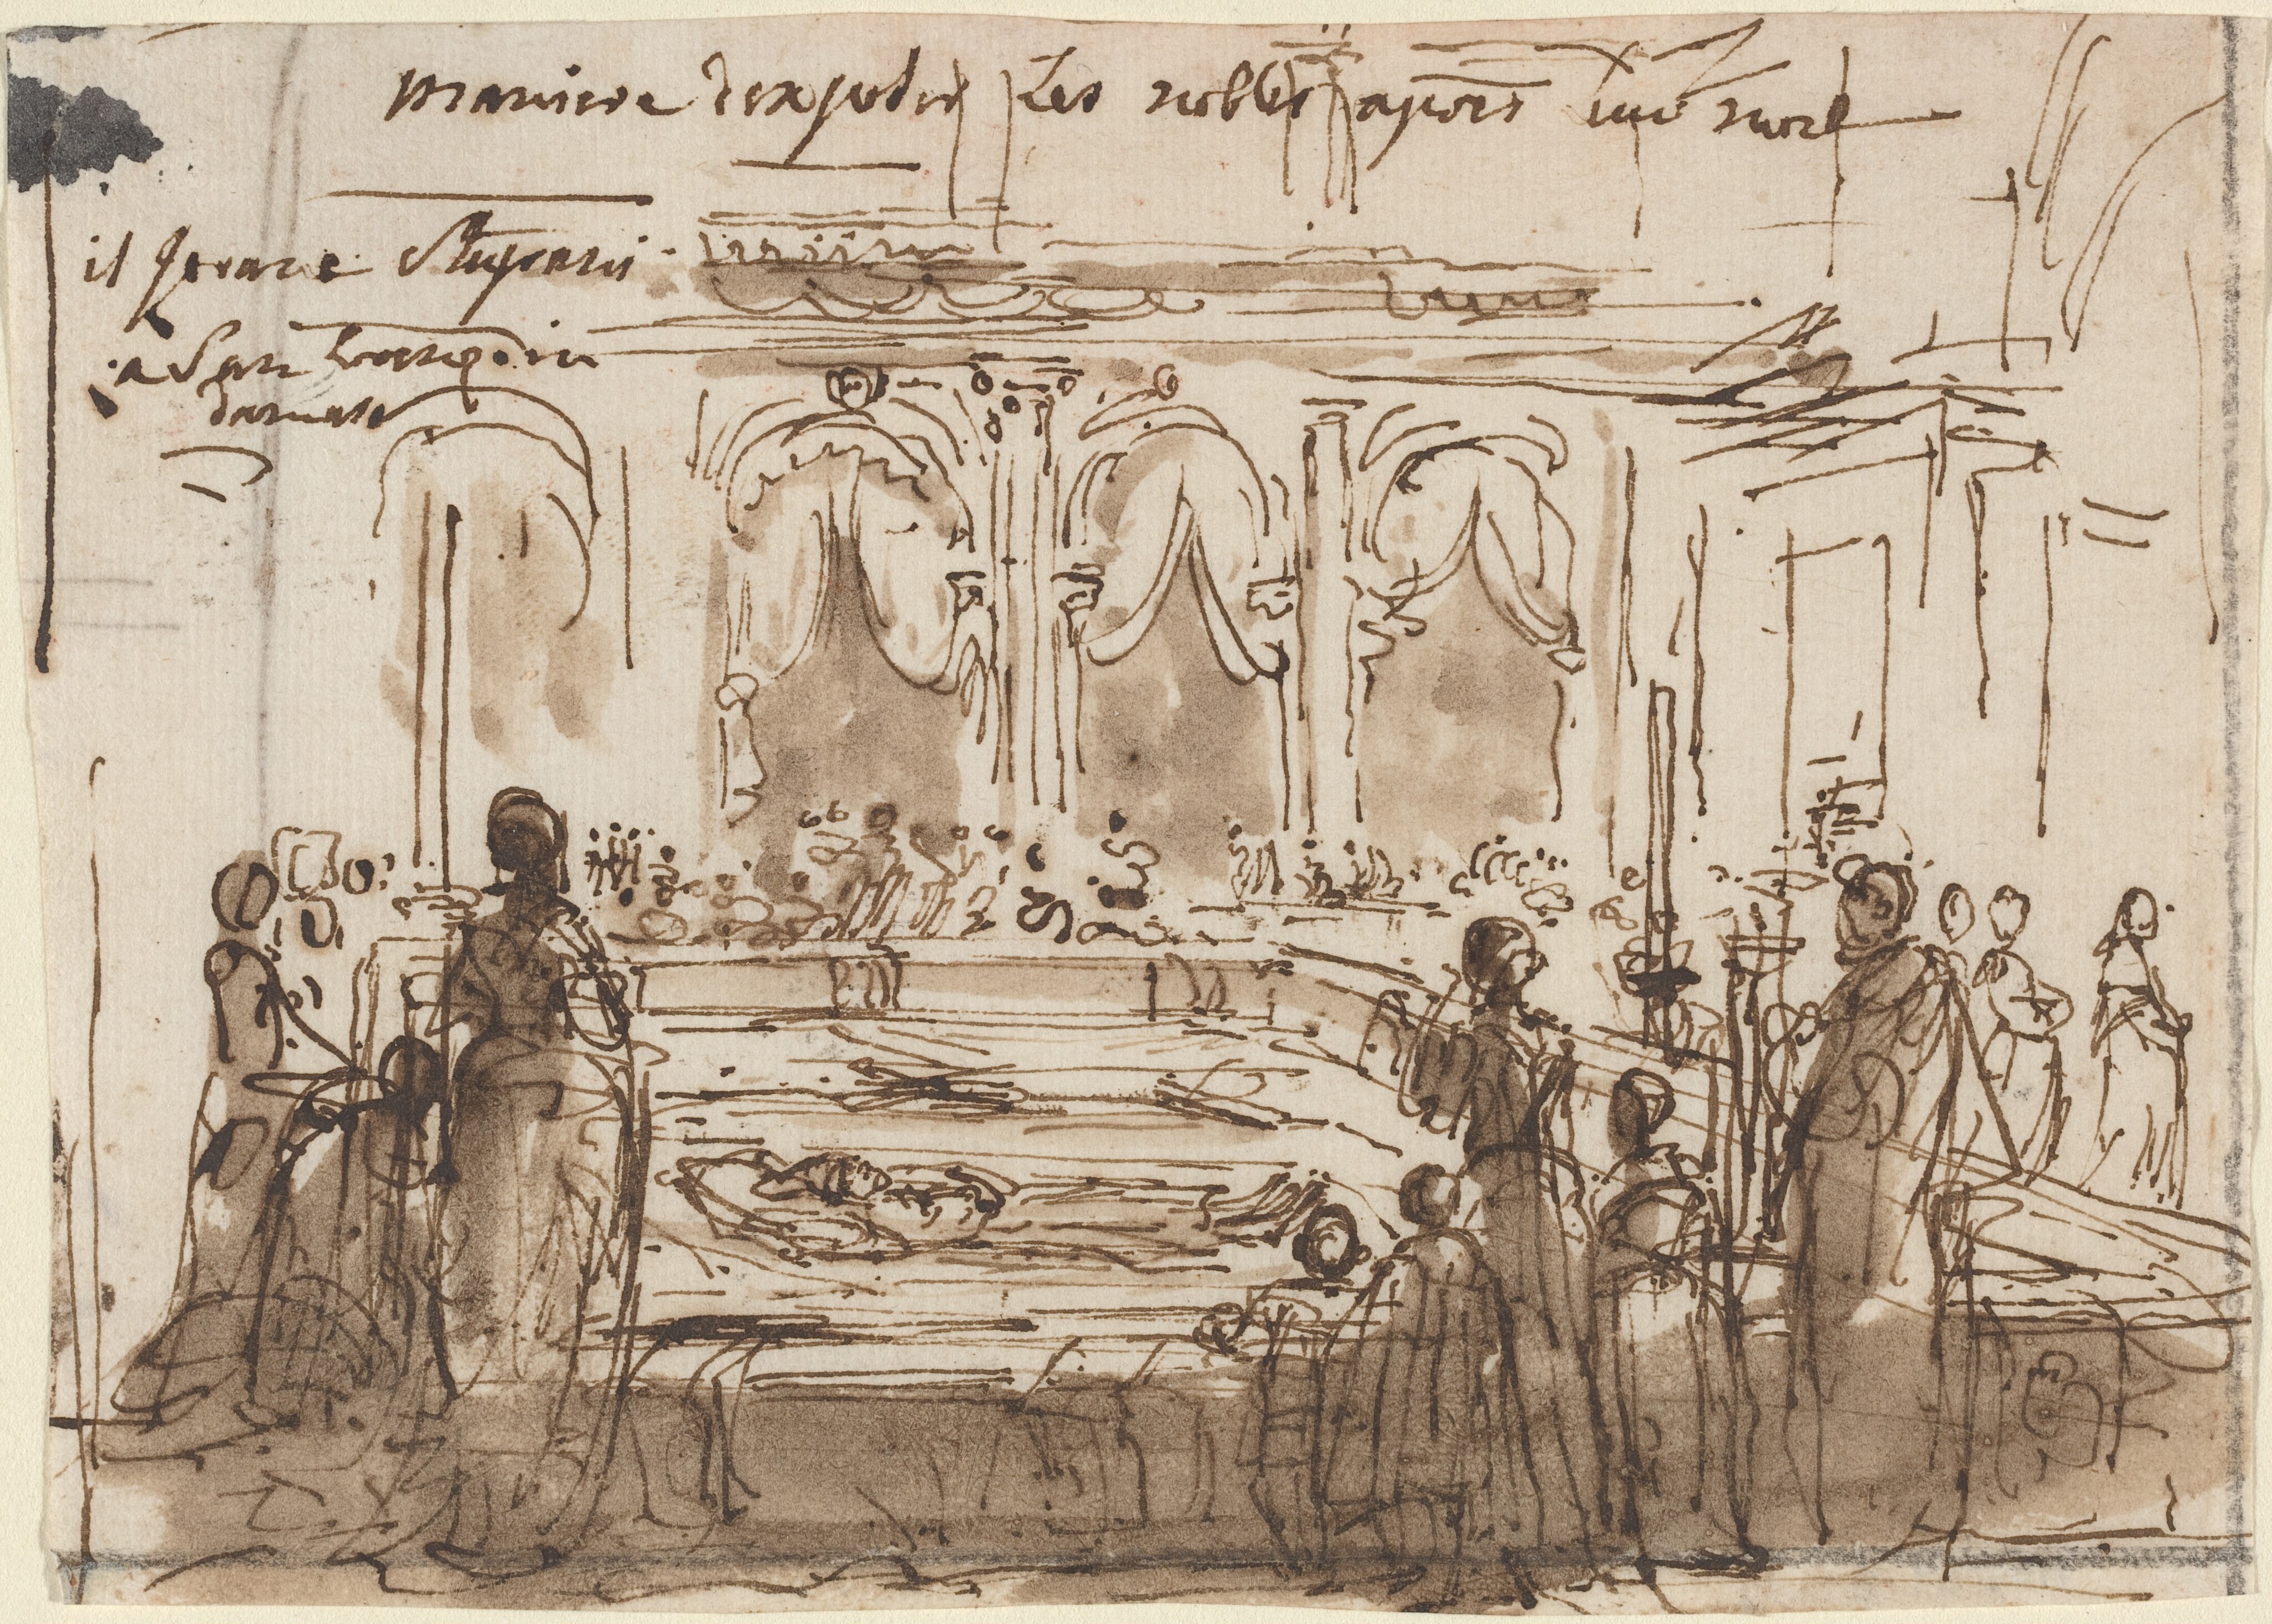 maniere d'exposer Les nobles apres leur mort
il
a San Lorenzo in
damaso